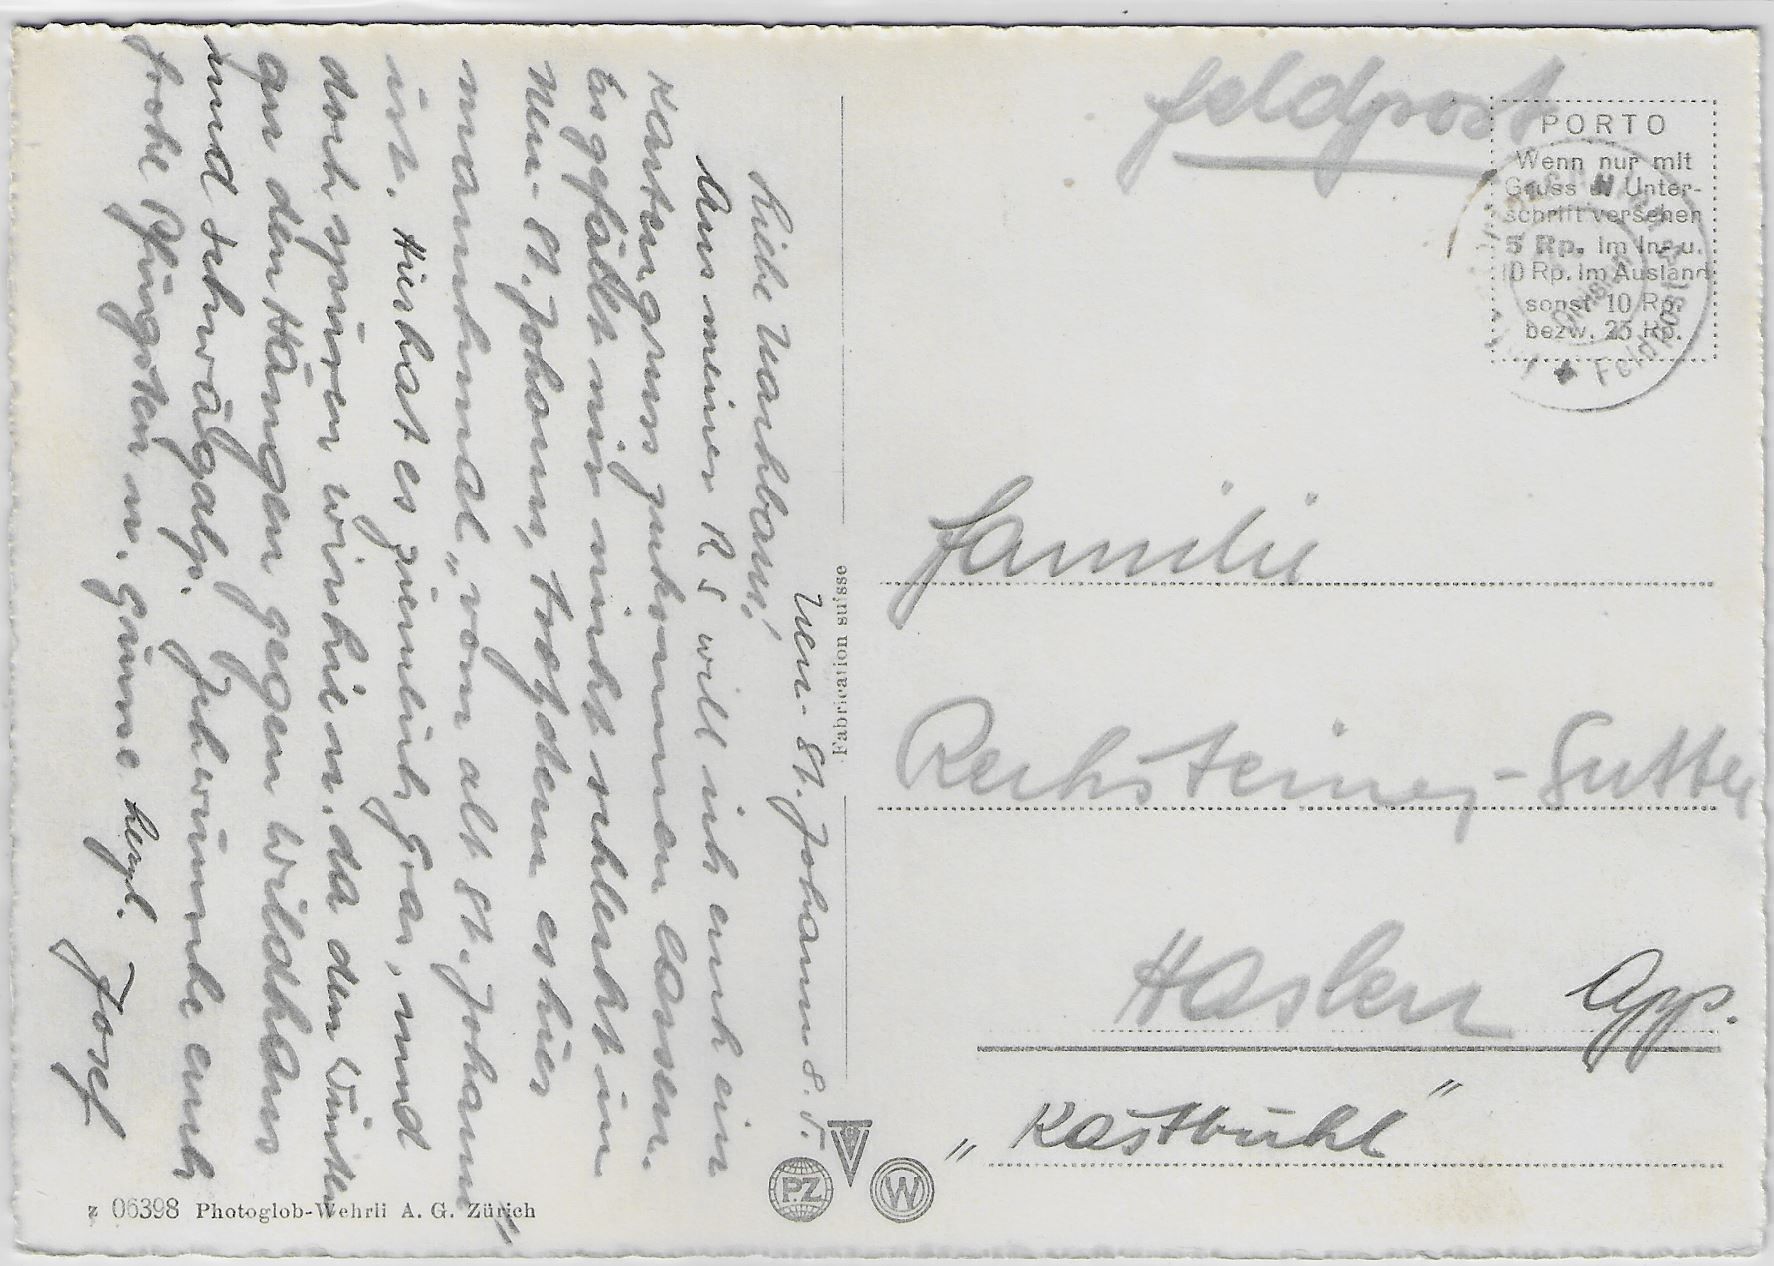 Feldpost
PORTO
Wenn nur mit
Gruss u. Unter-
schrift versehen
5 Rp. im In- u.
10 Rp. im Ausland
sonst 10 Rp.
bezw. 25 Rp.
Feldpost
Familie
Rechsteiner-Sutter
Haslen App.
"Kästbühl"
Fabrication suisse
PZ
W
z 06398 Photoglob-Wehrli A. G. Zürich
Neu-St. Johann 8. V.
Liebe Nachbarn!
Aus meiner R S will ich euch ein
Kartengruss zukommen lassen.
Es gefällt mir nicht schlecht in
Neu-St. Johann, trotzdem es hier
manchmal „vom alt St. Johann"
ist. Hür hat es ziemlich Gras, und
doch spüren wir hie u. da den Winter
an den Hängen gegen Wildhaus
und Schwägalp. Ich wünsche euch
frohe Pfingsten u. Grüsse herzl.
Josef